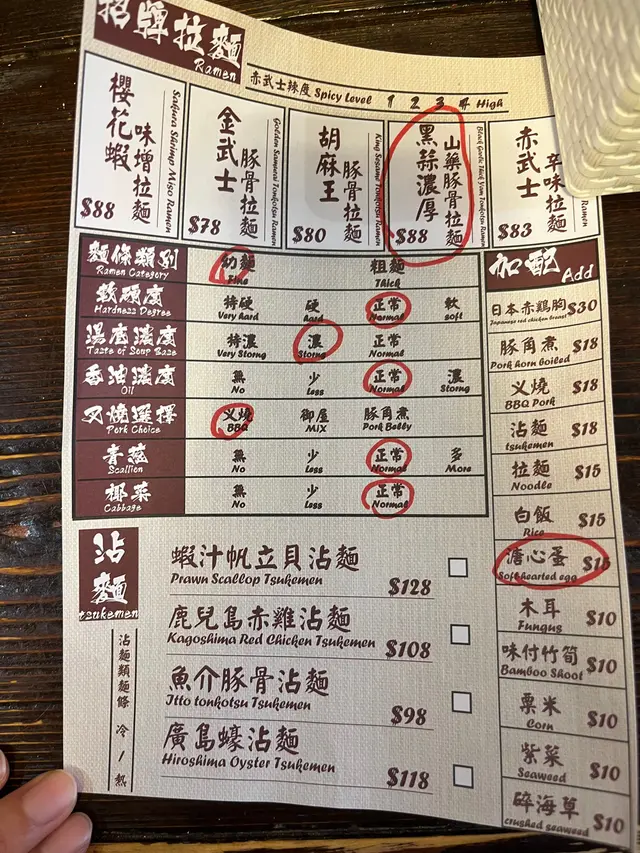 招牌拉麵
Ramen
赤武士辣度 Spicy Level 1 2 3 4 High
櫻花蝦
味噌拉麵
Sakura Shrimp Miso Ramen
$88
金武士
豚骨拉麵
Golden Samurai Tonkotsu Ramen
$78
胡麻王
豚骨拉麵
King Sesame Tonkotsu Ramen
$80
黑蒜濃厚
山藥豚骨拉麵
Black Garlic Thick Yam Tonkotsu Ramen
$88
赤武士
辛味拉麵
Ramen
$83
麵條類別
Ramen Category
幼麵 粗麵
Fine Thick
軟硬度
Hardness Degree
特硬 硬 正常 軟
Very hard hard Normal soft
湯底濃度
Taste of Soup Base
特濃 濃 正常
Very Storng Storng Normal
香油濃度
Oil
無 少 正常 濃
No Less Normal Storng
叉燒選擇
Pork Choice
叉燒 御屋 豚角煮
BBQ MIX Pork Belly
青蔥
Scallion
無 少 正常 多
No Less Normal More
椰菜
Cabbage
無 少 正常
No Less Normal
加配 Add
日本赤鶏胸 $30
Japanese red chicken breast
豚角煮 $18
Pork horn boiled
叉燒 $18
BBQ Pork
沾麵 $18
tsukemen
拉麵 $15
Noodle
白飯 $15
Rice
溏心蛋 $15
Soft hearted egg
木耳 $10
Fungus
味付竹筍 $10
Bamboo Shoot
粟米 $10
Corn
紫菜 $10
Seaweed
碎海草 $10
crushed seaweed
沾麵
tsukemen
沾麵類麵條 冷/熱
蝦汁帆立貝沾麵
Prawn Scallop Tsukemen $128
鹿兒島赤雞沾麵
Kagoshima Red Chicken Tsukemen $108
魚介豚骨沾麵
Itto tonkotsu Tsukemen $98
廣島蠔沾麵
Hiroshima Oyster Tsukemen $118